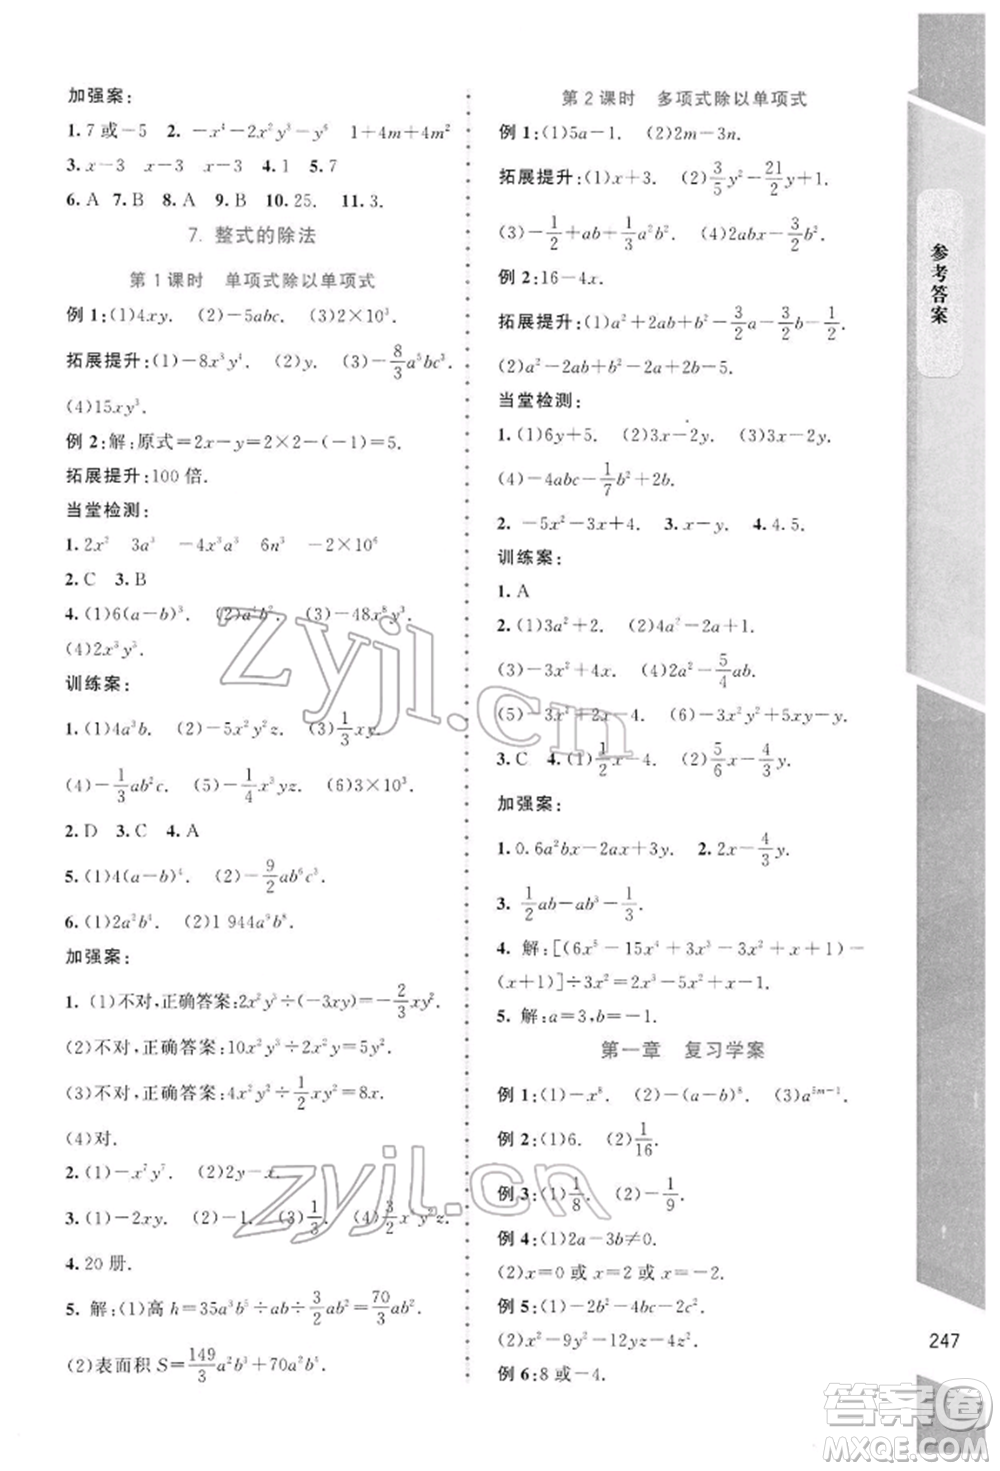 加强案:
1. 7 或-5　2. -x⁴-2x²y³-y⁶　1+4m+4m²
3. x-3　x-3　x-3　4. 1　5. 7
6. A　7. B　8. A　9. B　10. 25.　11. 3.
7. 整式的除法
第 1 课时　单项式除以单项式
例 1:(1)4xy.　(2)-5abc.　(3)2×10³.
拓展提升:(1)-8x³y⁴.　(2)y.　(3)-8/3a⁵bc³.
(4)15xy³.
例 2:解:原式=2x-y=2×2-(-1)=5.
拓展提升:100 倍.
当堂检测:
1. 2x²　3a³　-4x³a³　6n³　-2×10⁶
2. C　3. B
4. (1)6(a-b)³.　(2)a²b².　(3)-48x⁸y³.
(4)2x³y³.
训练案:
1. (1)4a³b.　(2)-5x²y²z.　(3)1/3xy.
(4)-1/3ab²c.　(5)-1/4x³yz.　(6)3×10³.
2. D　3. C　4. A
5. (1)4(a-b)⁴.　(2)-9/2ab⁶c³.
6. (1)2a²b⁴.　(2)1 944a⁹b⁸.
加强案:
1. (1)不对,正确答案:2x²y³÷(-3xy)=-2/3xy².
(2)不对,正确答案:10x²y³÷2x²y=5y².
(3)不对,正确答案:4x²y²÷1/2xy²=8x.
(4)对.
2. (1)-x²y².　(2)2y-x.
3. (1)-2xy.　(2)-1.　(3)1/3.　(4)3/2x²y²z.
4. 20 册.
5. 解:(1)高 h=35a³b⁵÷ab÷3/2ab²=70/3ab².
(2)表面积 S=149/3a²b³+70a²b⁴.
第 2 课时　多项式除以单项式
例 1:(1)5a-1.　(2)2m-3n.
拓展提升:(1)x+3.　(2)3/5y²-21/2y+1.
(3)-1/2+ab+1/3a²b².　(4)2ab-3/2b².
例 2:16-4x.
拓展提升:(1)a²+1/4b²+ab-3/2a-3/4b-1/2.
(2)a²-b²-2b-2a+2b-5.
当堂检测:
1. (1)6y+5.　(2)3x-2y.　(3)-3y+2x.
(4)-4abc-1/7b²+2b.
2. -5x²-3x+4.　3. x-y.　4. 4.5.
训练案:
1. A
2. (1)3a²+2.　(2)4a²-2a+1.
(3)-3x²+1.　(4)2a-5/4ab.
(5)-3x²+2x-4.　(6)-2x²y-5xy+1.
3. C　4. (1)1/2x-4.　(2)5/6x-3/2y.
加强案:
1. 0.6a²bx-2ax+3y.　2. 2x-4/3y.
3. 1/2ab-ab³-1/3.
4. 解:[(6x⁵-15x⁴+3x³-3x²+x+1)-
(x+1)]÷3x²=2x³-5x²+x-1.
5. 解:a=3,b=-1.
第一章　复习学案
例 1:(1)-x⁸.　(2)-(a-b)⁸.　(3)a⁵ᵐ⁻¹
例 2:(1)6.　(2)1/16.
例 3:(1)1/8.　(2)-1/9.
例 4:(1)2a-3b≠0.
(2)x=0 或 x=2 或 x=-2.
例 5:(1)-2b²-4bc-2c².
(2)x²-9y²-12yz-4z².
例 6:8 或-4.
参考答案
247
zyjl.cn
zyjl.cn
答案圈
MXQE.COM